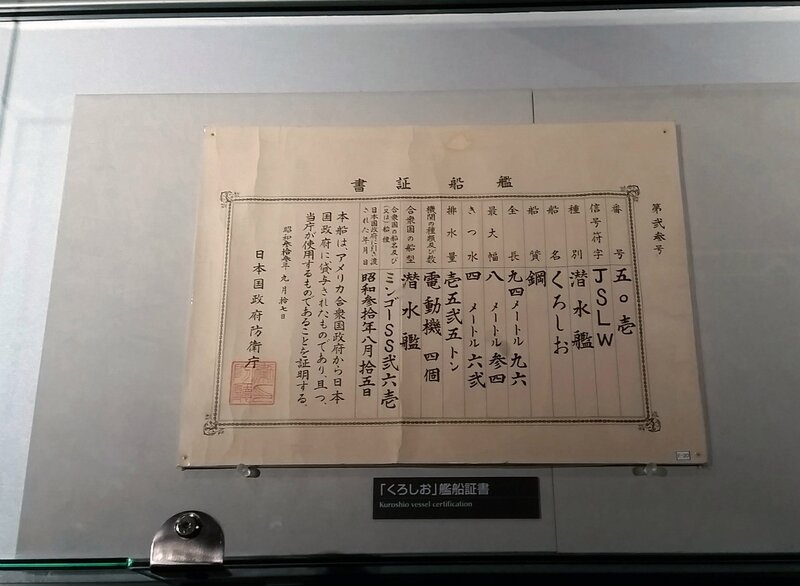 艦船証書
第弐参号
番号 五〇壱
信号符字 JSLW
種別 潜水艦
船名 くろしお
船質 鋼
全長 九四メートル九六
最大幅 八メートル参四
きつ水 四メートル六弐
排水量 壱五弐五トン
機関の種類及び数 電動機 四個
合衆国の船型 潜水艦
合衆国の船名及び(又は)船種 ミンゴーSS弐六壱
日本国政府に引き渡された年月日 昭和参拾年八月拾五日
本船は、アメリカ合衆国政府から日本
国政府に貸与されたものであり、且つ、
当庁が使用するものであることを証明する。
昭和参拾参年九月拾七日
日本国政府防衛庁
「くろしお」艦船証書
Kuroshio vessel certification